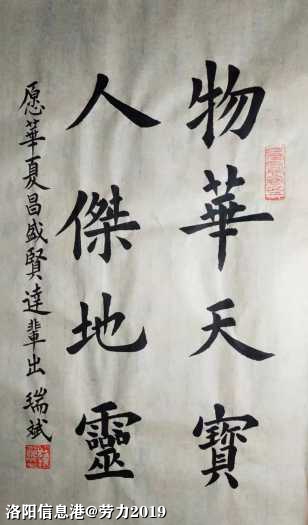 物華天寶
人傑地靈
愿華夏昌盛賢達輩出 瑞斌
洛阳信息港@劳力2019